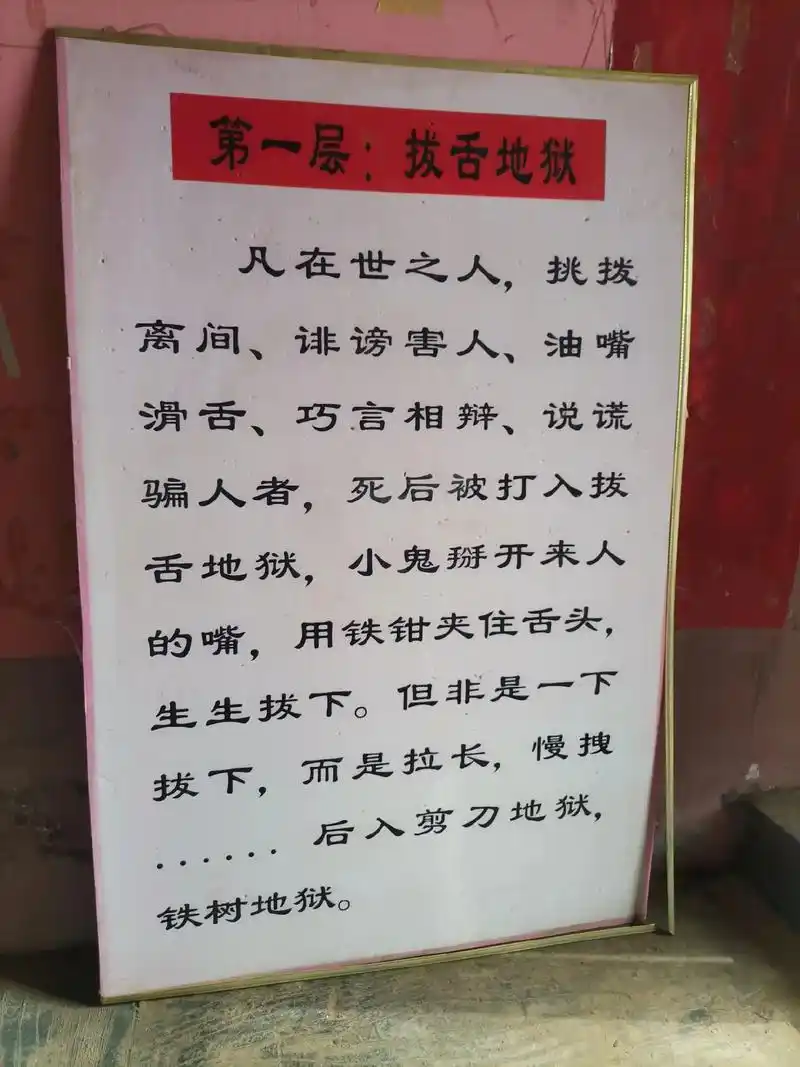 第一层：拔舌地狱
凡在世之人，挑拨
离间、诽谤害人、油嘴
滑舌、巧言相辩、说谎
骗人者，死后被打入拔
舌地狱，小鬼掰开来人
的嘴，用铁钳夹住舌头，
生生拔下。但非是一下
拔下，而是拉长，慢拽
......后入剪刀地狱，
铁树地狱。